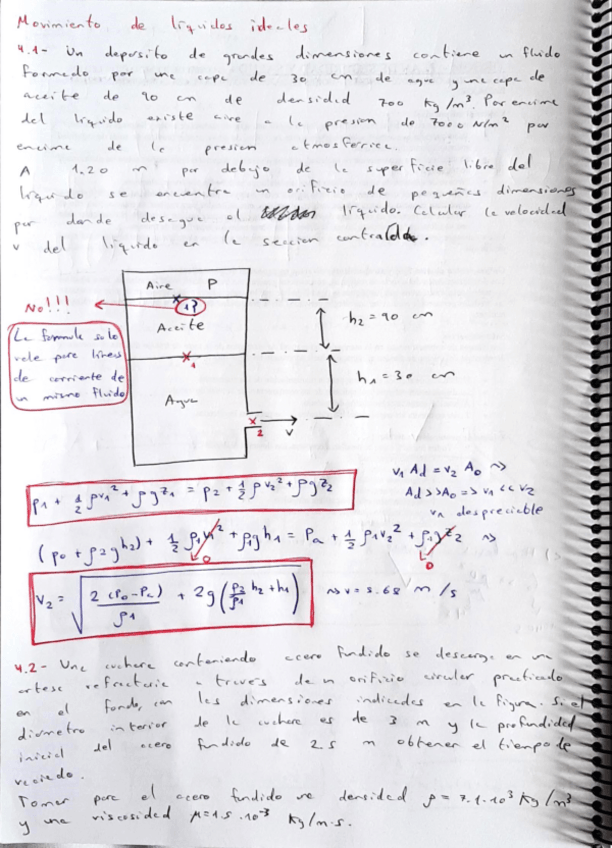 Movimiento de líquidos ideales
4.1- Un deposito de grandes dimensiones contiene un fluido
formado por una capa de 30 cm de agua y una capa de
aceite de 90 cm de densidad 700 kg/m³. Por encima
del líquido existe aire a la presion de 7000 N/m² por
encima de la presion atmosferica.
A 1.20 m por debajo de la superficie libre del
líquido se encuentra un orificio de pequeñas dimensiones
por donde desagua el líquido. Calcular la velocidad
v del líquido en la seccion contraída.
Aire P
No!!!
1?
Aceite
h2 = 90 cm
La formula solo
vale para líneas
de corriente de
un mismo fluido
1
Agua
h1 = 30 cm
2
v
p1 + 1/2 ρv1² + ρgz1 = p2 + 1/2 ρv2² + ρgz2
v1 Ad = v2 Ao ⇝
Ad >> Ao => v1 << v2
v1 despreciable
(po + ρ2gh2) + 1/2 ρ1v1² + ρ1gh1 = Pa + 1/2 ρ1v2² + ρ1gz2 ⇝
0
0
v2 = √(2(Po-Pa)/ρ1 + 2g(ρ2/ρ1 h2 + h1)) ⇝ v = 5.68 m/s
4.2- Una cuchara conteniendo acero fundido se descarga en una
artesa refractaria a traves de un orificio circular practicado
en el fondo, con las dimensiones indicadas en la figura. Si el
diametro interior de la cuchara es de 3 m y la profundidad
inicial del acero fundido de 2.5 m obtener el tiempo de
vaciado.
Tomar para el acero fundido una densidad ρ = 7.1·10³ kg/m³
y una viscosidad μ = 1.5·10⁻³ kg/m·s.